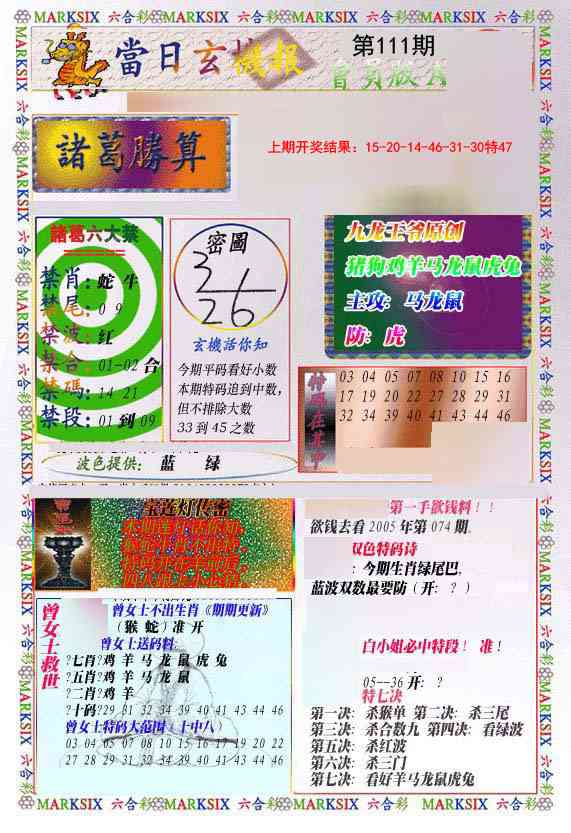 MARKSIX 六合彩 MARKSIX 六合彩 MARKSIX 六合彩 MARKSIX 六合彩 MARKSIX
當日玄機報
第111期
會員版A
諸葛勝算
上期开奖结果：15-20-14-46-31-30特47
諸葛六大禁
禁肖：蛇 牛
禁尾：0 9
禁波：红
禁合：01-02 合
禁碼：14 21
禁段：01 到 09
密圖
3
26
玄機活你知
今期平码看好小数
本期特码追到中数，
但不排除大数
33 到 45 之数
九龙王爷原创
猪狗鸡羊马龙鼠虎兔
主攻：马龙鼠
防：虎
特码在其中
03 04 05 07 08 10 15 16
17 19 20 22 27 28 29 31
32 34 39 40 41 43 44 46
波色提供： 蓝 绿
宝莲灯传密
曾女士救世
曾女士不出生肖《期期更新》
（猴 蛇）准 开
曾女士送码料
?七肖?鸡 羊 马 龙 鼠 虎 兔
?五肖?鸡 羊 马 龙 鼠
?二肖?鸡 羊
?十码?29 31 32 34 39 40 41 43 44 46
曾女士特码大范围（十中八）
03 04 05 07 08 10 15 16 17 19 20 22
27 28 29 31 32 34 39 40 41 43 44 46
第一手欲钱料！！
欲钱去看 2005 年第 074 期.
双色特码诗
：今期生肖绿尾巴,
蓝波双数最要防（开：？）
白小姐必中特段！ 准！
05--36 开：？
特七决
第一决：杀猴单 第二决：杀三尾
第三决：杀合数九 第四决：看绿波
第五决：杀红波
第六决：杀三门
第七决：看好羊马龙鼠虎兔
MARKSIX 六合彩 MARKSIX 六合彩 MARKSIX 六合彩 MARKSIX 六合彩 MARKSIX